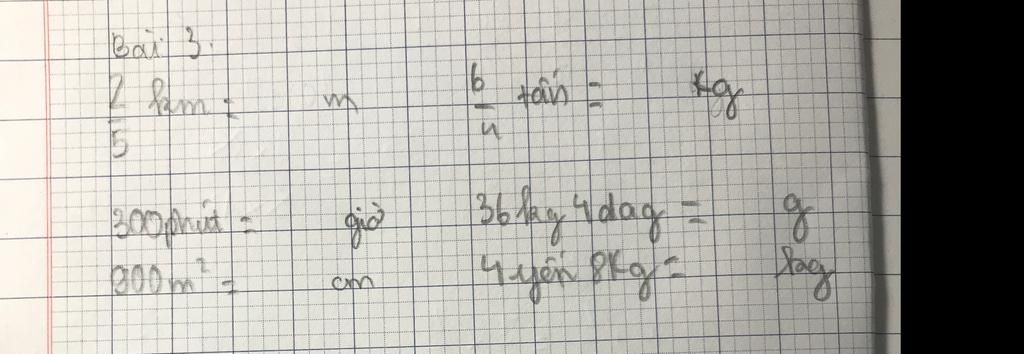 Bài 3.
2/5 km = m 6/4 tấn = kg
300 phút = giờ 36 kg 4 dag = g
900m² = cm 4 yến 8 kg = kg